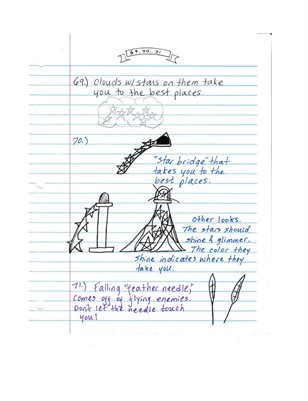 69, 70, 71
69.) Clouds w/stars on them take
you to the best places
70.)
"Star bridge" that
takes you to the
best places.
Other looks.
The stars should
shine & glimmer.
The color they
shine indicates where they
take you.
71.) Falling "feather needle,"
Comes off of flying enemies.
Don't let the needle touch
you!